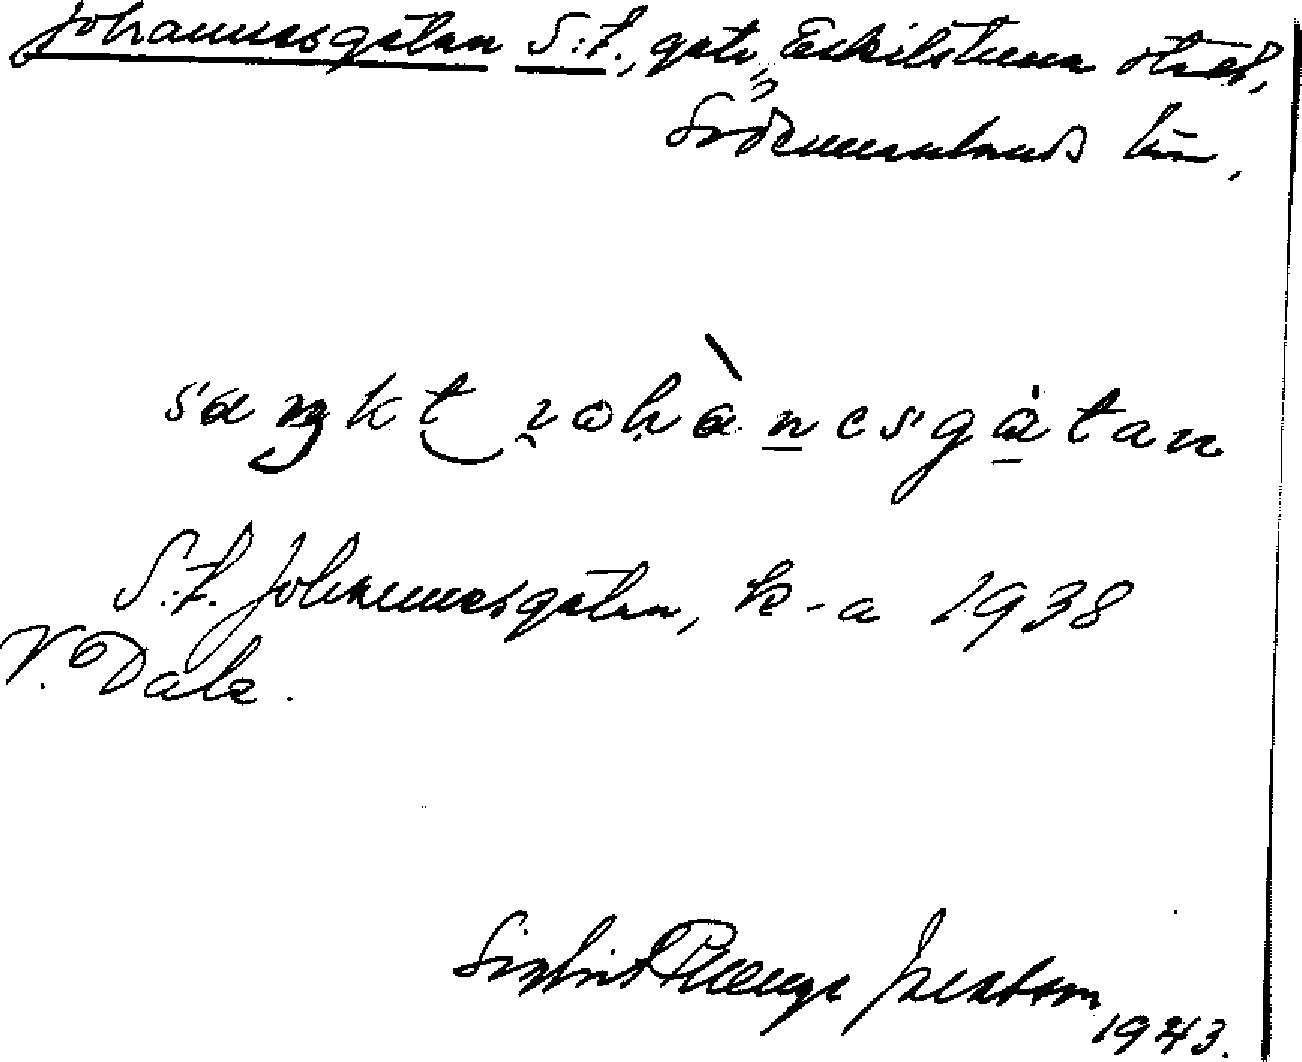 Johannesgatan S:t, gata, Eskilstuna stad,
Södermanlands län,
saŋkt johànesgatan
S:t Johannesgatan, k-a 1938
V. Dala.
1943.